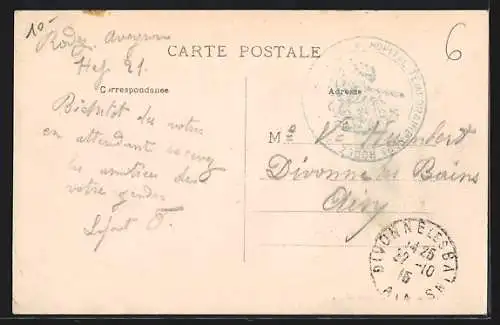 10-
6
Rodez Aveyron
CARTE POSTALE
Correspondance
Adresse
HOPITAL TEMPORAIRE
Bientôt des votres
en attendant recevez
les amitiés de
votre gendre
Lafont F.
Me Ve Humbert
Divonne les Bains
Ain
DIVONNE LES BAINS
14 25
-10
15
AIN